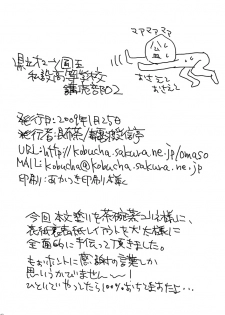 マアママママ
公し
皿
おさえて
おさえて
県立オマー/国玉
私設高等学校
購売部02
発行日：2009年1月25日
発行者：昆布茶/
URL：http://kobucha.sakura.ne.jp/omaso
MAIL：kobucha@kobucha.sakura.ne.jp
印刷：あかつき印刷さま
今回本文塗りを茶碗蒸コリィ様に、
表紙裏表紙レイアウトを犬た様に
全面的に手伝って頂きました。
もおホントに感謝の言葉しか
思いうかびません〜〜！
ひとりでやってたら100%おちてましたよ…